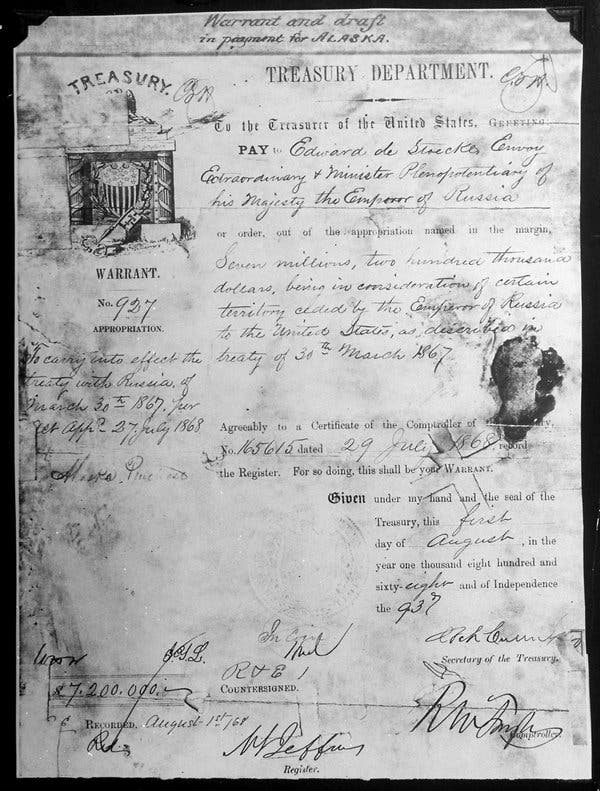 Warrant and draft
in payment for ALASKA.
TREASURY.
TREASURY DEPARTMENT.
To the Treasurer of the United States, GREETING:
PAY to Edward de Stoeckl Envoy
Extraordinary & Minister Plenopotentiary of
his Majesty the Emperor of Russia
or order, out of the appropriation named in the margin,
Seven millions, two hundred thousand
dollars, being in consideration of certain
territory ceded by the Emperor of Russia
to the United States, as described in
treaty of 30th March 1867
WARRANT.
No. 927
APPROPRIATION.
To carry into effect the
treaty with Russia of
March 30th 1867. per
act App. 27 July 1868
Alaska
Agreeably to a Certificate of the Comptroller of
No. 165615 dated 29 July 1868, record
the Register. For so doing, this shall be your WARRANT.
Given under my hand and the seal of the
Treasury, this first
day of August, in the
year one thousand eight hundred and
sixty-eight and of Independence
the 93d
Secretary of the Treasury.
$7.200.000.
R & E 1
COUNTERSIGNED.
Comptroller.
RECORDED, August 1st/68
Register.